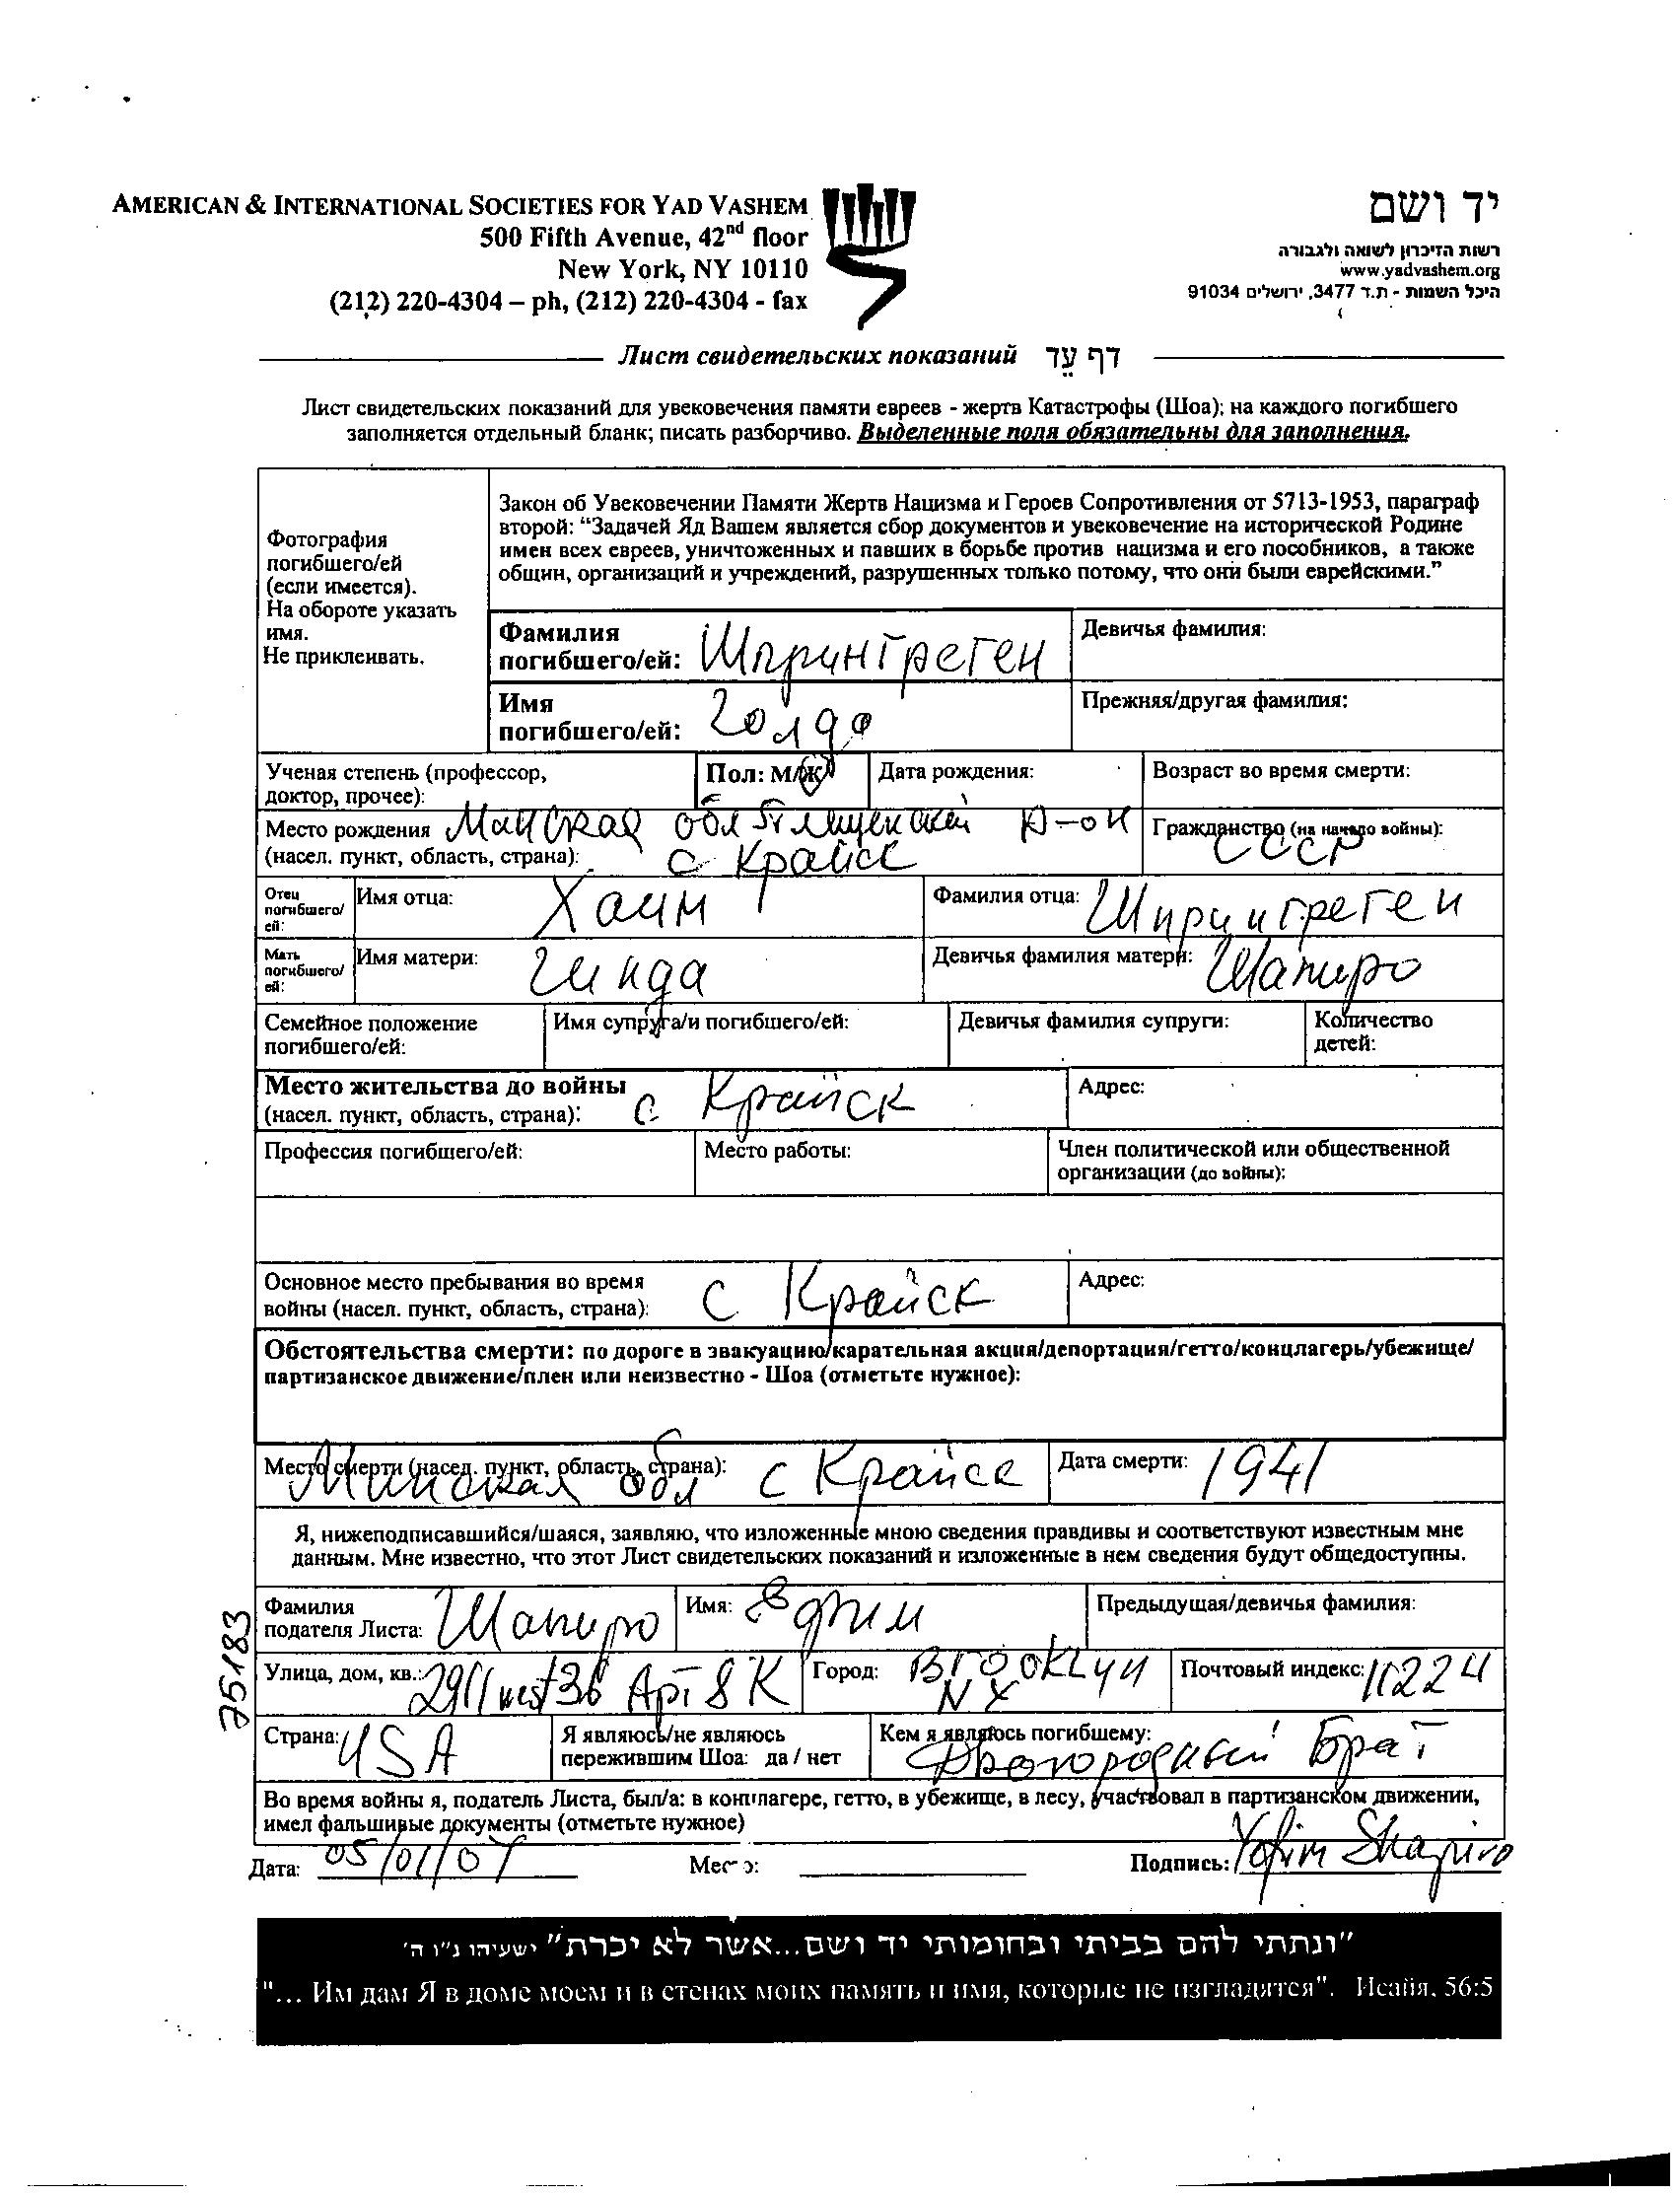 AMERICAN & INTERNATIONAL SOCIETIES FOR YAD VASHEM
500 Fifth Avenue, 42nd floor
New York, NY 10110
(212) 220-4304 – ph, (212) 220-4304 - fax
יד ושם
רשות הזיכרון לשואה ולגבורה
www.yadvashem.org
היכל השמות - ת.ד 3477, ירושלים 91034
Лист свидетельских показаний דף עֵד
Лист свидетельских показаний для увековечения памяти евреев - жертв Катастрофы (Шоа); на каждого погибшего
заполняется отдельный бланк; писать разборчиво. Выделенные поля обязательны для заполнения.
Фотография
погибшего/ей
(если имеется).
На обороте указать
имя.
Не приклеивать.
Закон об Увековечении Памяти Жертв Нацизма и Героев Сопротивления от 5713-1953, параграф
второй: “Задачей Яд Вашем является сбор документов и увековечение на исторической Родине
имен всех евреев, уничтоженных и павших в борьбе против нацизма и его пособников, а также
общин, организаций и учреждений, разрушенных только потому, что они были еврейскими.”
Фамилия
погибшего/ей: Шпрингреген
Девичья фамилия:
Имя
погибшего/ей: Голда
Прежняя/другая фамилия:
Ученая степень (профессор,
доктор, прочее):
Пол: М/Ж
Дата рождения:
Возраст во время смерти:
Место рождения Минская обл Плещенский р-он
(насел. пункт, область, страна): с Крайск
Гражданство (на начало войны):
СССР
Отец
погибшего/
ей:
Имя отца: Хаим
Фамилия отца: Шпрингреген
Мать
погибшего/
ей:
Имя матери: Гинда
Девичья фамилия матери: Шапиро
Семейное положение
погибшего/ей:
Имя супруга/и погибшего/ей:
Девичья фамилия супруги:
Количество
детей:
Место жительства до войны
(насел. пункт, область, страна): с Крайск
Адрес:
Профессия погибшего/ей:
Место работы:
Член политической или общественной
организации (до войны):
Основное место пребывания во время
войны (насел. пункт, область, страна): с Крайск
Адрес:
Обстоятельства смерти: по дороге в эвакуацию/карательная акция/депортация/гетто/концлагерь/убежище/
партизанское движение/плен или неизвестно - Шоа (отметьте нужное):
Место смерти (насел. пункт, область, страна):
Минская обл с Крайск
Дата смерти: 1941
Я, нижеподписавшийся/шаяся, заявляю, что изложенные мною сведения правдивы и соответствуют известным мне
данным. Мне известно, что этот Лист свидетельских показаний и изложенные в нем сведения будут общедоступны.
Фамилия
подателя Листа: Шапиро
Имя: Ефим
Предыдущая/девичья фамилия:
Улица, дом, кв.: 2911 west 36 Apt 8K
Город: Brooklyn
NY
Почтовый индекс: 11224
Страна: USA
Я являюсь/не являюсь
пережившим Шоа: да / нет
Кем я являюсь погибшему:
Двоюродный Брат
Во время войны я, податель Листа, был/а: в концлагере, гетто, в убежище, в лесу, участвовал в партизанском движении,
имел фальшивые документы (отметьте нужное)
Дата: 05/01/07
Место:
Подпись: Yefim Shapiro
"ונתתי להם בביתי ובחומותי יד ושם...אשר לא יכרת" ישעיהו נ"ו ה'
"... Им дам Я в доме моем и в стенах моих память и имя, которые не изгладятся". Исайя, 56:5